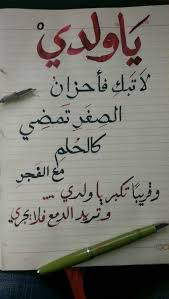 يا ولدي
لا تبك فأحزان
الصغر تمضي
كالحلم
مع الفجر
وقريبًا تكبر يا ولدي ...
وتريد الدمع فلا يجري